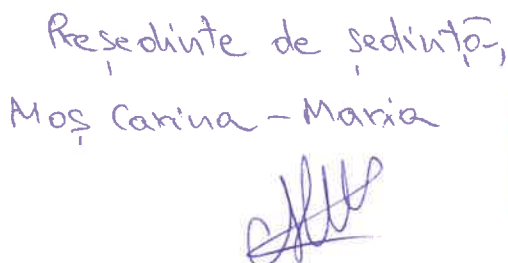 Președinte de ședință,
Moș Carina - Maria